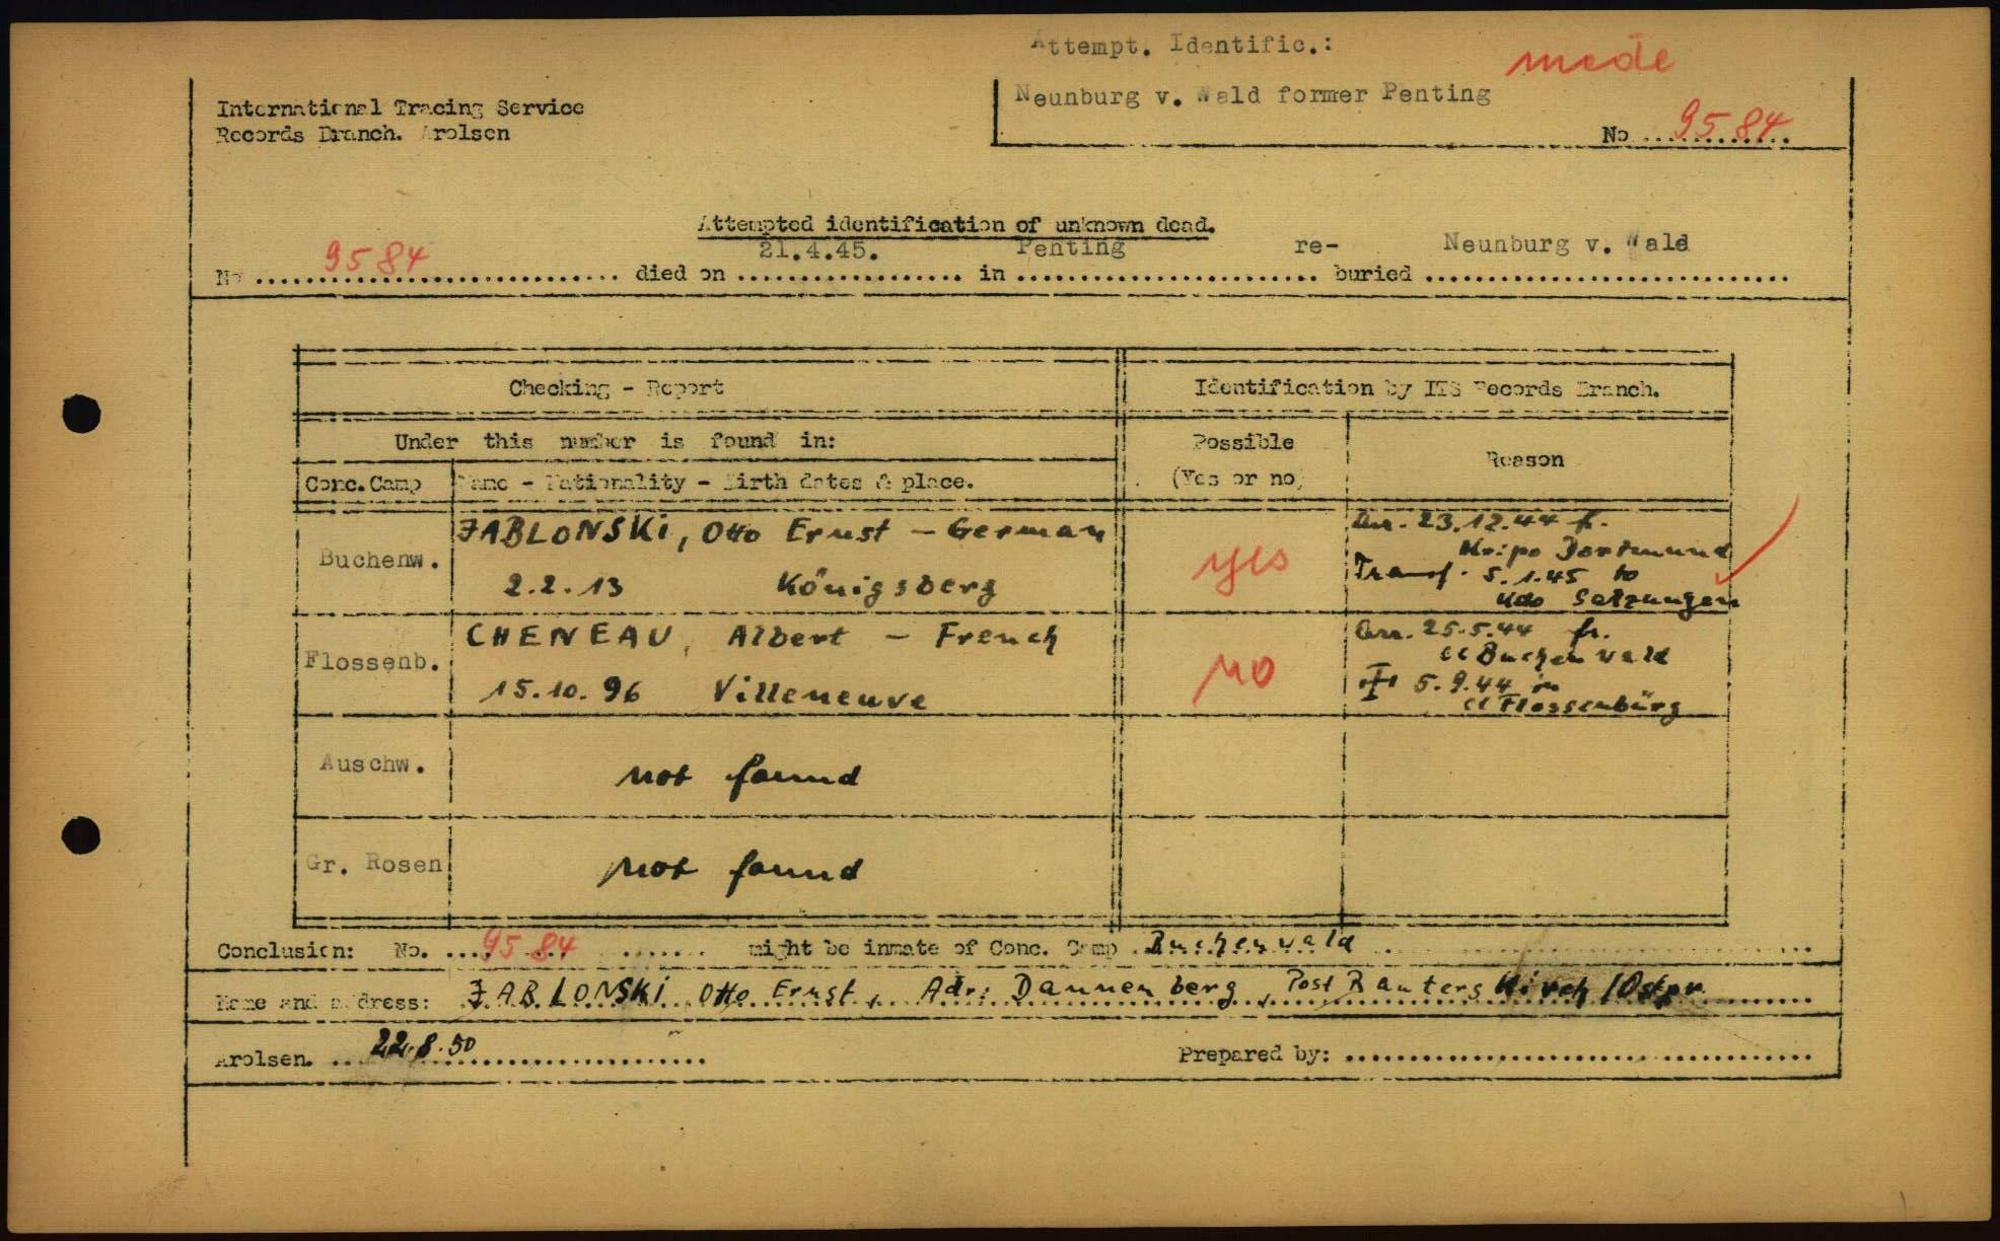 Attempt. Identific.:
made
Neunburg v. Wald former Penting
No ............ 9584
International Tracing Service
Records Branch. Arolsen
Attempted identification of unknown dead.
No 9584 died on 21.4.45. in Penting re-buried Neunburg v. Wald
Checking - Report
Identification by ITS Records Branch.
Under this number is found in:
Possible
(Yes or no)
Reason
Conc. Camp
Name - Nationality - Birth dates & place.
Buchenw.
JABLONSKi, Otto Ernst - German
2.2.13 Königsberg
yes
Arr. 23.12.44 fr.
Kripo Dortmund
Transf. 5.1.45 to
Kdo Salzungen
Flossenb.
CHENEAU, Albert - French
15.10.96 Villeneuve
no
Arr. 25.5.44 fr.
CC Buchenwald
5.9.44 in
CC Flossenbürg
Auschw.
not found
Gr. Rosen
not found
Conclusion: No. 9584 might be inmate of Conc. Camp Buchenwald
Name and address: JABLONSKi Otto Ernst, Adr: Dannenberg, Post Rauterskirch/Ostpr.
Arolsen. 22.8.50
Prepared by: